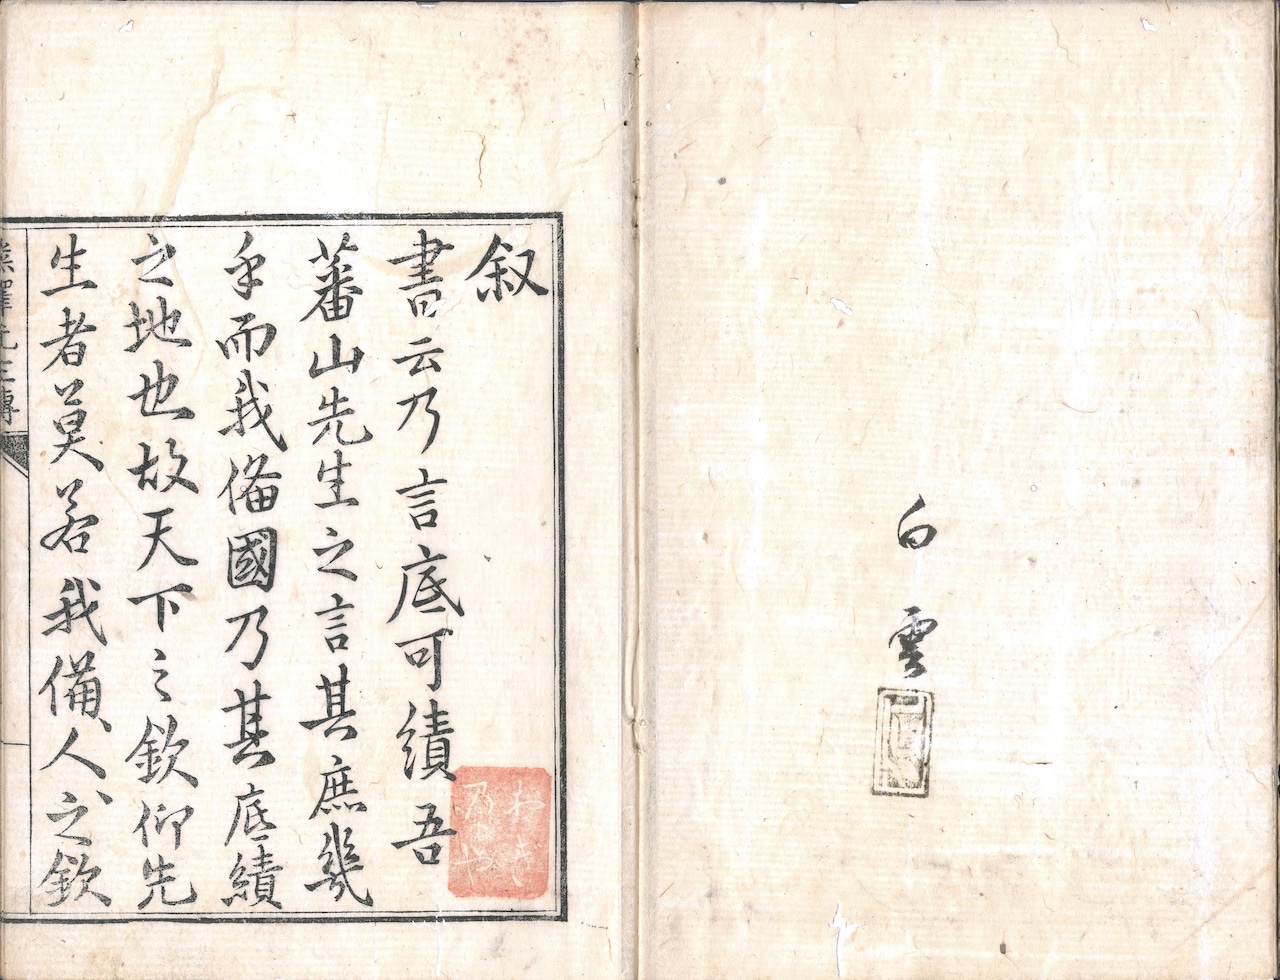 白雲
叙
書云乃言底可績吾
蕃山先生之言其庶幾
乎而我俻國乃其底績
之地也故天下之欽仰先
生者莫若我備人之欽
熊澤先生傳